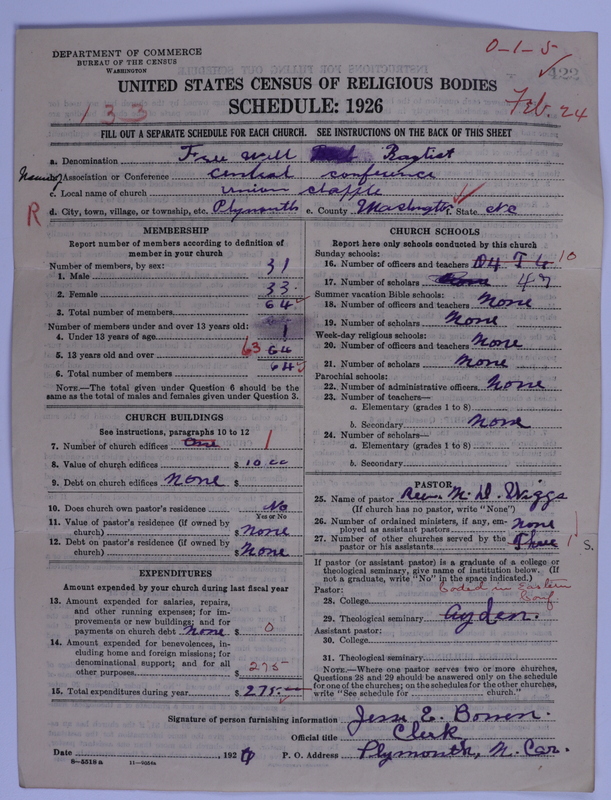 DEPARTMENT OF COMMERCE
BUREAU OF THE CENSUS
WASHINGTON
0-1-5
422
UNITED STATES CENSUS OF RELIGIOUS BODIES
133
SCHEDULE: 1926
Feb. 24
FILL OUT A SEPARATE SCHEDULE FOR EACH CHURCH. SEE INSTRUCTIONS ON THE BACK OF THIS SHEET
a. Denomination Free Will Baptist
Name of Association or Conference Central conference
c. Local name of church union chapple
R d. City, town, village, or township, etc. Plymouth e. County Washington State NC
MEMBERSHIP
Report number of members according to definition of
member in your church
Number of members, by sex:
1. Male 31
2. Female 33
3. Total number of members 64
Number of members under and over 13 years old:
4. Under 13 years of age 1
5. 13 years old and over 63 64
6. Total number of members 64
NOTE.—The total given under Question 6 should be the
same as the total of males and females given under Question 3.
CHURCH BUILDINGS
See instructions, paragraphs 10 to 12
7. Number of church edifices One 1
8. Value of church edifices $ 1000
9. Debt on church edifices None $
10. Does church own pastor's residence No
Yes or No
11. Value of pastor's residence (if owned by
church) $ None
12. Debt on pastor's residence (if owned by
church) $ None
EXPENDITURES
Amount expended by your church during last fiscal year
13. Amount expended for salaries, repairs,
and other running expenses; for im-
provements or new buildings; and for
payments on church debt none $ 0
14. Amount expended for benevolences, in-
cluding home and foreign missions; for
denominational support; and for all
other purposes $ 275
15. Total expenditures during year $ 275
CHURCH SCHOOLS
Report here only schools conducted by this church
Sunday schools:
16. Number of officers and teachers O4 T 6 10
17. Number of scholars 47
Summer vacation Bible schools:
18. Number of officers and teachers None
19. Number of scholars None
Week-day religious schools:
20. Number of officers and teachers None
21. Number of scholars None
Parochial schools:
22. Number of administrative officers None
23. Number of teachers—
a. Elementary (grades 1 to 8)
b. Secondary None
24. Number of scholars—
a. Elementary (grades 1 to 8)
b. Secondary
PASTOR
25. Name of pastor Rev. N. D. Wiggs
(If church has no pastor, write "None")
26. Number of ordained ministers, if any, em-
ployed as assistant pastors None
27. Number of other churches served by the
pastor or his assistants Three
S.
If pastor (or assistant pastor) is a graduate of a college or
theological seminary, give name of institution below. (If
not a graduate, write "No" in the space indicated.)
Pastor: Coded in Eastern
28. College Conf
29. Theological seminary Ayden.
Assistant pastor:
30. College
31. Theological seminary
NOTE.—Where one pastor serves two or more churches,
Questions 28 and 29 should be answered only on the schedule
for one of the churches; on the schedules for the other churches,
write "See schedule for church."
Signature of person furnishing information Jesse E. Bowen.
Official title Clerk
Date , 192 P. O. Address Plymouth, N. Car.
8—5518 a 11—9554a